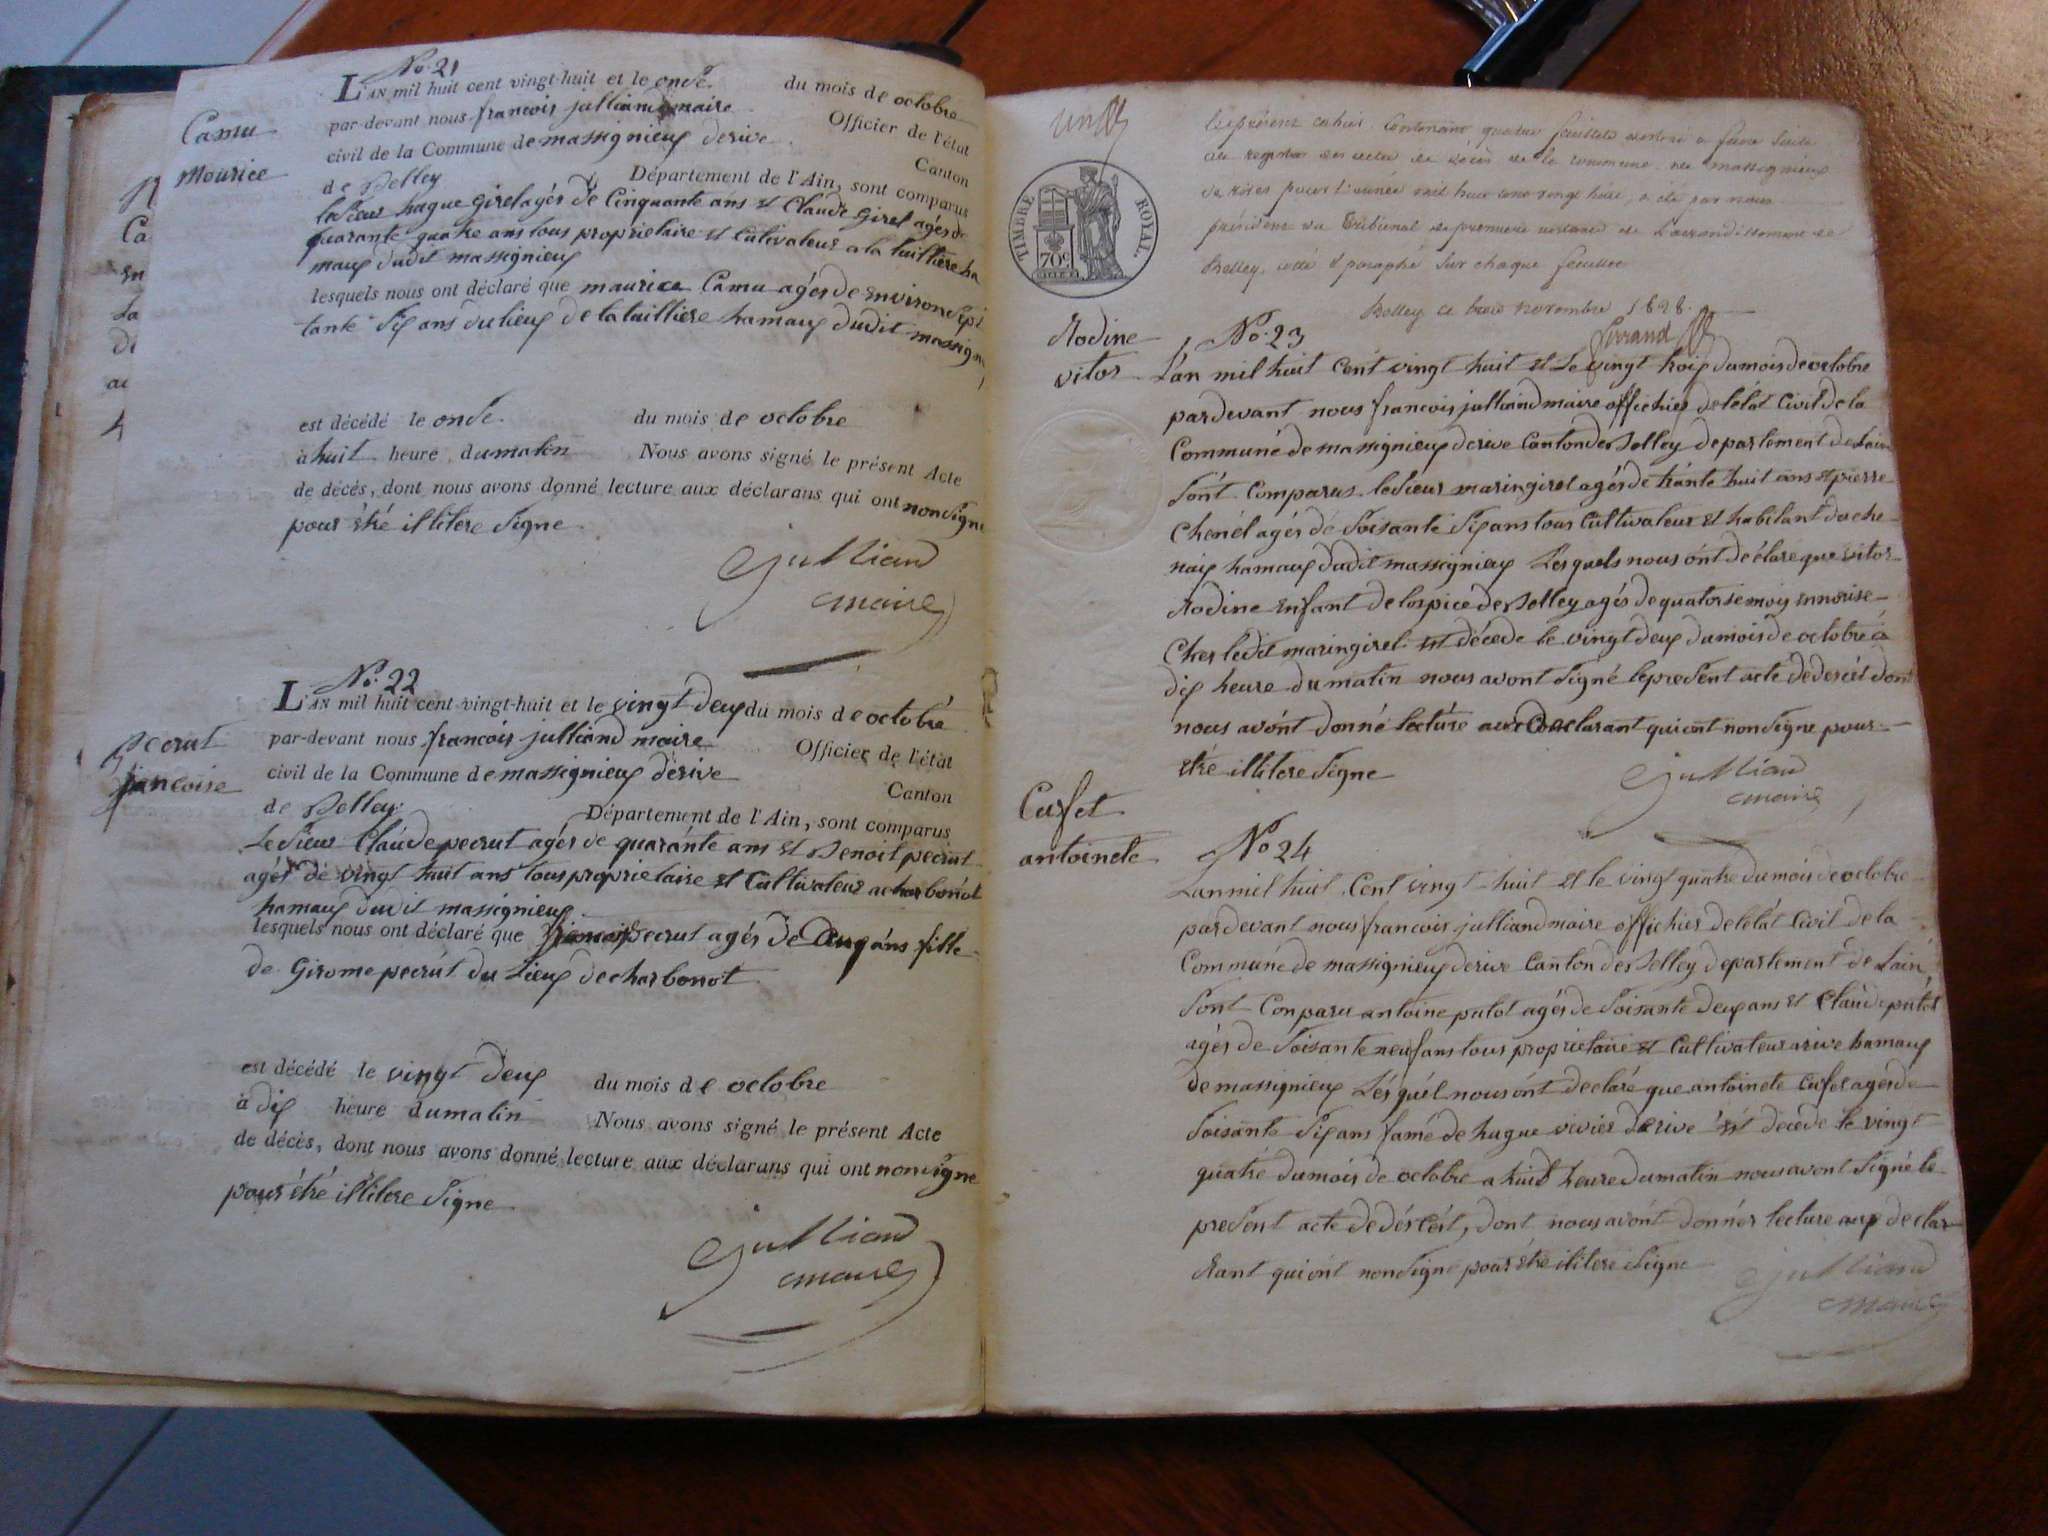 No. 21
L'AN mil huit cent vingt-huit et le onde du mois de octobre
par-devant nous francois julliand maire Officier de l'état
civil de la Commune de massignieux derive Canton
de Belley Département de l'Ain, sont comparus
Camu
Mourice
lesieur hugue girel agés de Cinquante ans et Claude Girel agés de
quarante quatre ans tous proprietaire et Cultivateur a la tuilliere ha
maux dudit massignieux
lesquels nous ont déclaré que maurice Camu agés de environ sepi
tante six ans du lieux de la tuilliere hamaux dudit massigni
est décédé le onde du mois de octobre
à huit heure dumatin Nous avons signé le présent Acte
de décès, dont nous avons donné lecture aux déclarans qui ont nonsigne
pour êtré illitere Signe
julliand
maire
No. 22
L'AN mil huit cent vingt-huit et le vingt deux du mois de octobre
par-devant nous francois julliand maire Officier de l'état
civil de la Commune de massignieux derive Canton
de Belley Département de l'Ain, sont comparus
pecrut
francoise
Le Sieur Claude pecrut agés de quarante ans et Benoit pecrut
agés de vingt huit ans tous proprietaire et Cultivateur a charbonot
hamaux dudit massignieux
lesquels nous ont déclaré que pecrut agés de Deux ans fille
de Girome pecrut du Lieux de charbonot
est décédé le vingt deux du mois de octobre
à dix heure dumatin Nous avons signé le présent Acte
de décès, dont nous avons donné lecture aux déclarans qui ont nonsigne
pour êtré illitere Signe
julliand
maire
TIMBRE ROYAL.
70c.
Le présent cahier Contenant quatre feuillets destiné a faire suite
au registre des actes de décès de la commune de massignieux
de rives pour l'année mil huit cent vingt huit, a été par nous
président du Tribunal de premiere instance de L'arrondissement de
Belley, coté & paraphé Sur chaque feuillet
Belley ce trois novembre 1828.
Rodine
vitor
No. 23
L'an mil huit Cent vingt huit et Le vingt trois du mois de octobre
pardevant nous francois julliand maire offichier de létát Civil de la
Communé de massignieux derive Canton de Belley departement de Lain
Sont Comparus lesieur maringirel agés de tránte huit ans et pierre
Chenel agés de Soisante Six ans tous Cultivateur et habitant du che
naix hamaux dudit massignieux Lesquels nous ont declaré que vitor
Rodine enfant de lospice de Belley agés de quatorse mois ennourise
Ches ledit maringirel est décéde le vingt deux dumois de octobre à
dix heure du matin nous avont Signé lepresent acté dedescét dont
nous avont donné lecture aux declarant qui ont nonsigne pour
etré illitere signe
julliand
maire
Curfet
antoinete
No 24
Lan mil huit Cent vingt huit et le vingt quatre dumois de octobre
pardevant nous francois julliand maire offichier de létát Civil de la
Communé de massignieux derive Canton de Belley departement de Lain,
Sont Conparu antoine putot agés de Soisante deux ans et Claude putot
agés de Soisante neuf ans tous proprietaire et Cultivateur a rive hamaux
de massignieux Lesquél nous ont declaré que antoinete Curfet agés de
Soisante Six ans famé de hugue vivier derive est décéde le vingt
quatre dumois de octobre a huit heure Dumatin nous avont Signé le
present acte dedéscét, dont nous avont donnér lecture aux declar
Rant qui ont nonsigne pour être ilitere Signe
julliand
maire